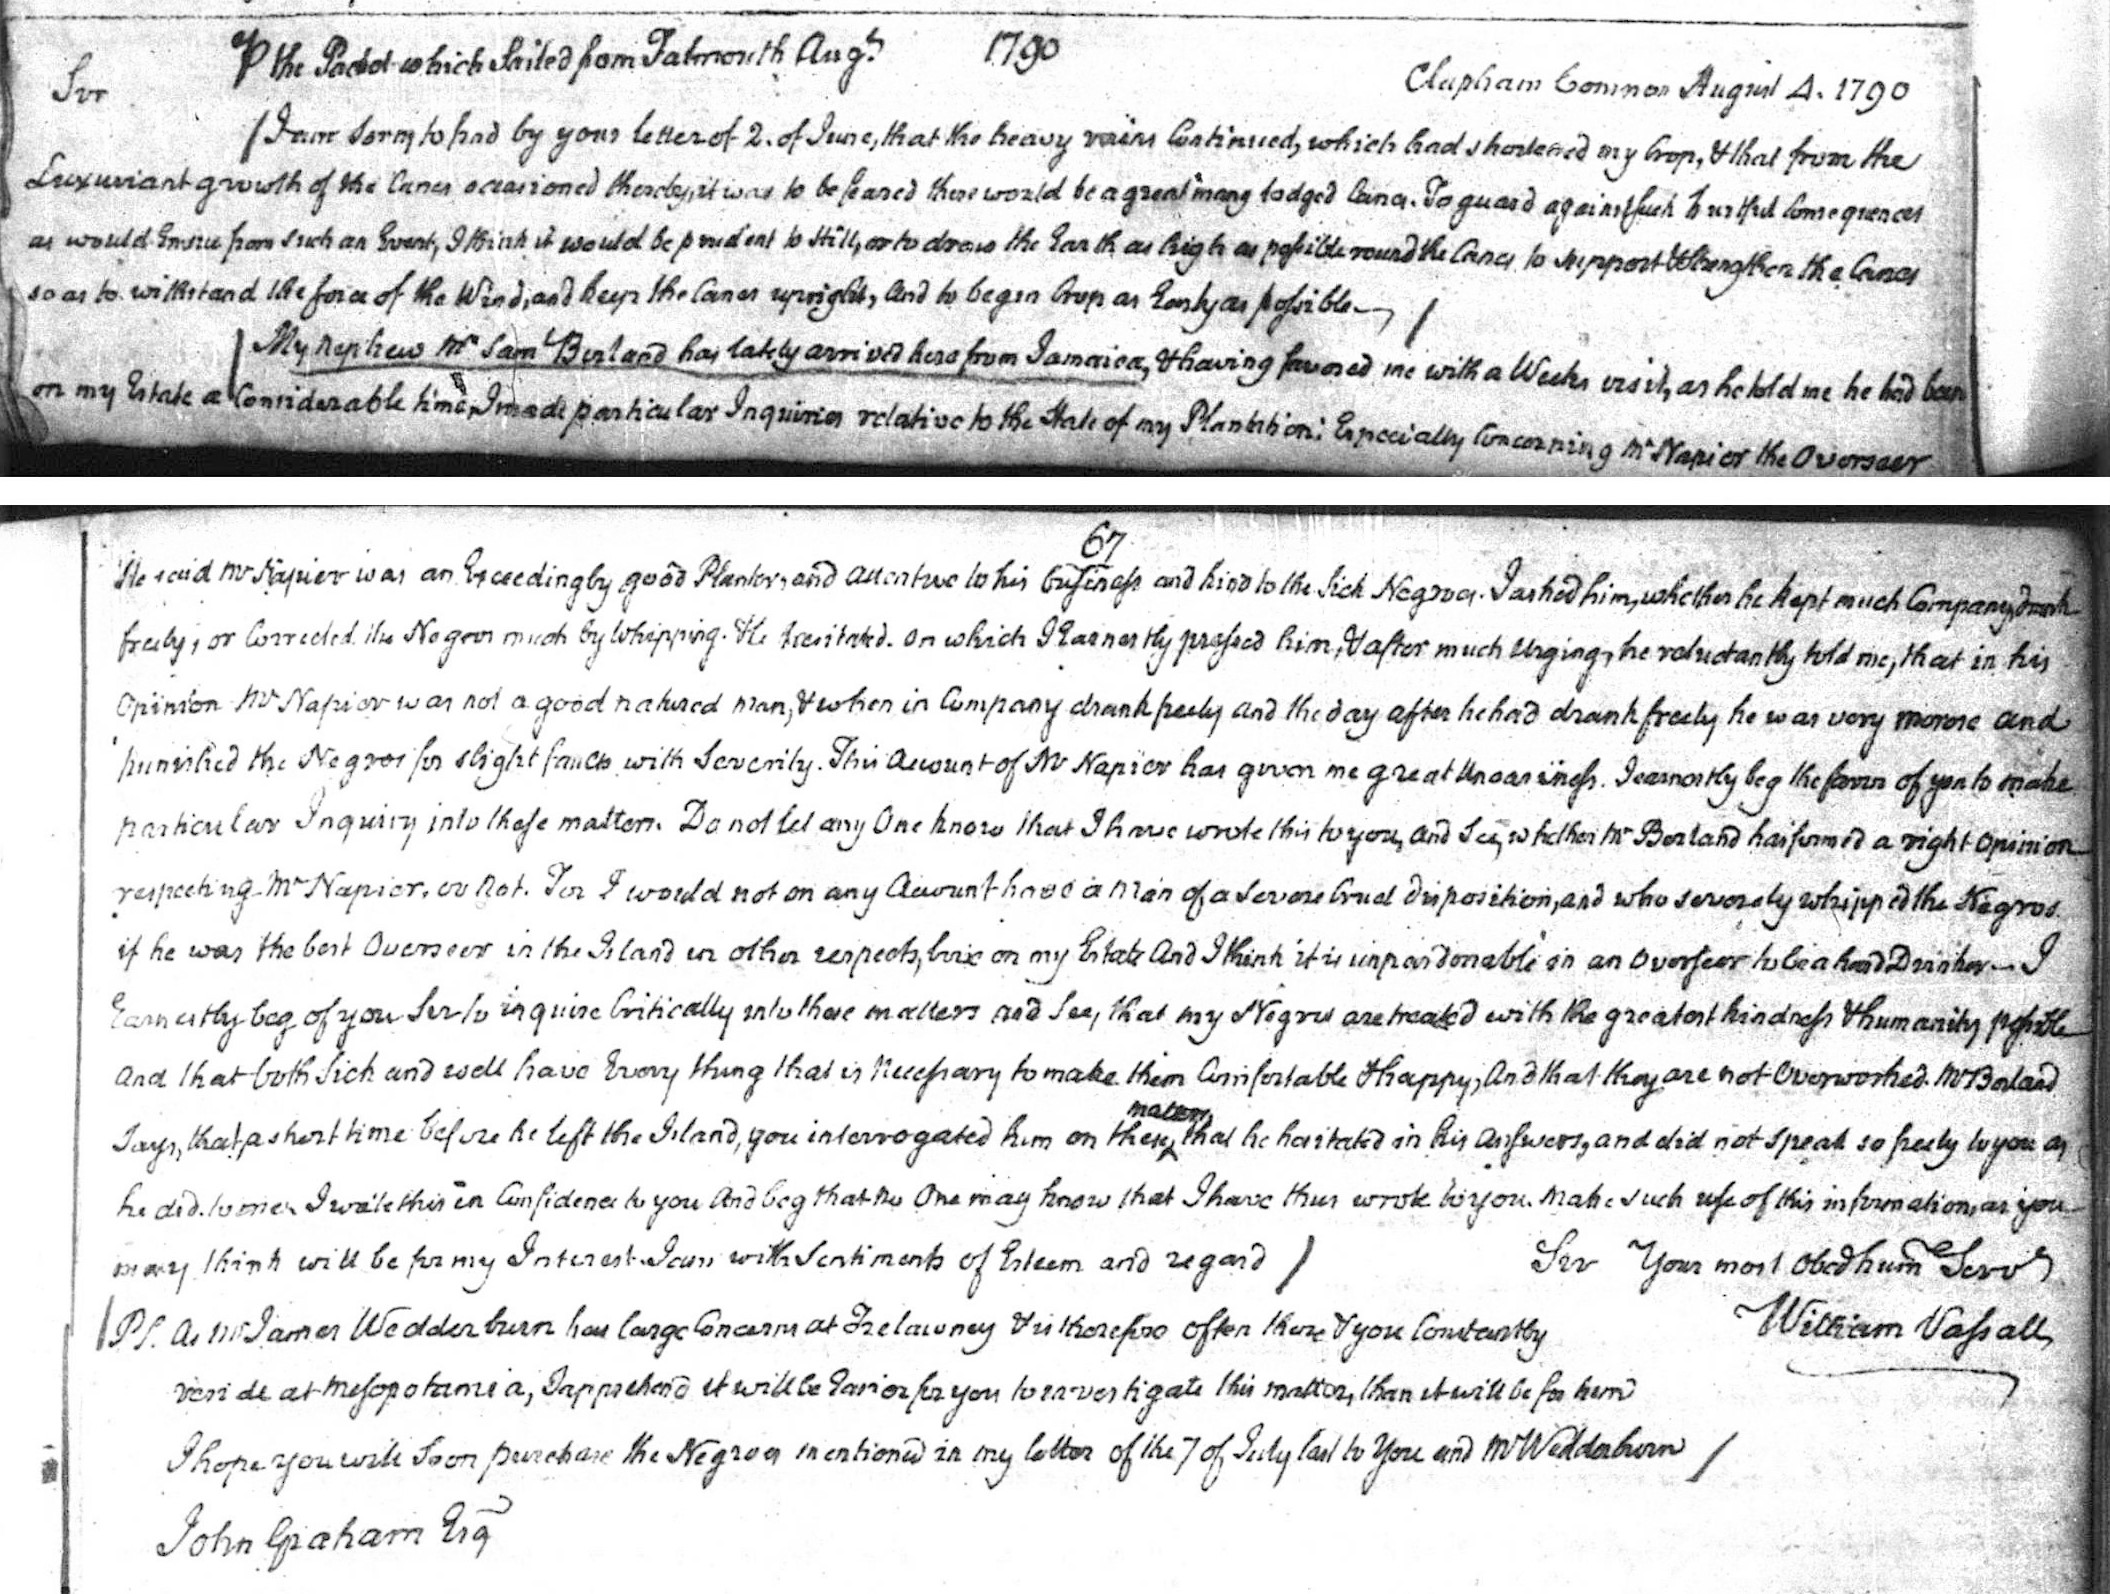 P the Packet which Sailed from Falmouth Augt 1790
Clapham Common August 4. 1790
Sir
I am sorry to find by your letter of 2. of June, that the heavy rains Continued, which had shortened my Crop, & that from the
Luxuriant growth of the Canes occasioned thereby, it was to be feared there would be a great many lodged Canes. To guard against such hurtful Consequences
as would Ensue from such an Event, I think it would be prudent to still, or to draw the Earth as high as possible round the Canes to support & strengthen the Canes
so as to withstand the force of the Wind, and keep the Canes upright, And to begin Crop as Early as possible —
My Nephew Mr Saml Borland has lately arrived here from Jamaica, & having favored me with a Weeks visit, as he told me he had been
on my Estate a Considerable time, I made particular Inquiries relative to the State of my Plantation: Especially Concerning Mr Napier the Overseer
67
He said Mr Napier was an Exceedingly good Planter, and attentive to his business and kind to the Sick Negros. I asked him, whether he kept much Company, drank
freely, or Corrected the Negros much by Whipping. He hesitated. on which I Earnestly pressed him, & after much Urging, he reluctantly told me, that in his
Opinion Mr Napier was not a good natured man, & when in Company drank freely and the day after he had drank freely he was very morose and
punished the Negros for slight faults with Severity. This Account of Mr Napier has given me great Uneasiness. I earnestly beg the favor of you to make
particular Inquiry into these matters. Do not let any One know that I have wrote this to you, and See, whether Mr Borland has formed a right Opinion
respecting Mr Napier, or Not. For I would not on any Account have a Man of a Severe Cruel disposition, and who severely whipped the Negros
if he was the best Overseer in the Island in other respects, live on my Estate And I think it is unpardonable in an Overseer to be a hard Drinker — I
Earnestly beg of you Sir to inquire Critically into these matters and See, that my Negros are treated with the greatest kindness & humanity possible
And that both Sick and well have Every thing that is Necessary to make them Comfortable & happy, And that they are not Overworked. Mr Borland
Says, that a short time before he left the Island, you interrogated him on these matters, that he hesitated in his Answers, and did not speak so freely to you as
he did to me. I write this in Confidence to you And beg that no One may know that I have thus wrote to you. Make such use of this information, as you
may think will be for my Interest. I am with Sentiments of Esteem and regard
Sir Your most Obed hum Servt
William Vassall
PS. As Mr James Wedderburn has large Concerns at Trelawney & is therefore often there & you Constantly
reside at Mesopotamia, I apprehend it will be Easier for you to investigate this matter, than it will be for him
I hope you will Soon purchase the Negros mentioned in my letter of the 7 of July last to You and Mr Wedderburn
John Graham Esq